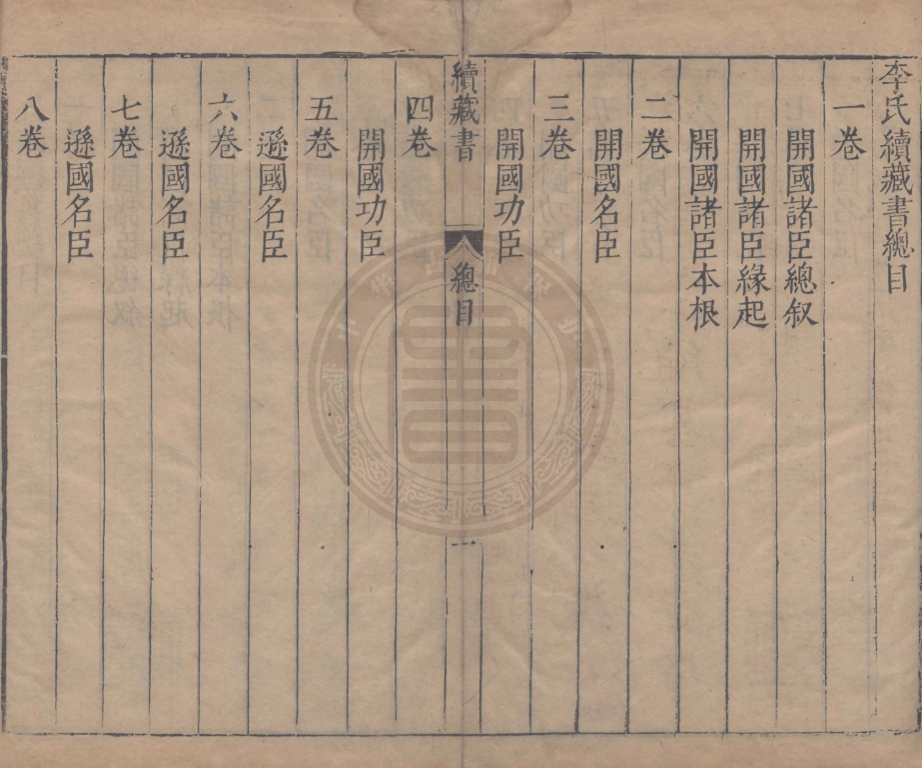 李氏續藏書總目
一卷
開國諸臣總叙
開國諸臣緣起
開國諸臣本根
二卷
開國名臣
三卷
開國功臣
續藏書
總目
一
四卷
開國功臣
五卷
遜國名臣
六卷
遜國名臣
七卷
遜國名臣
八卷